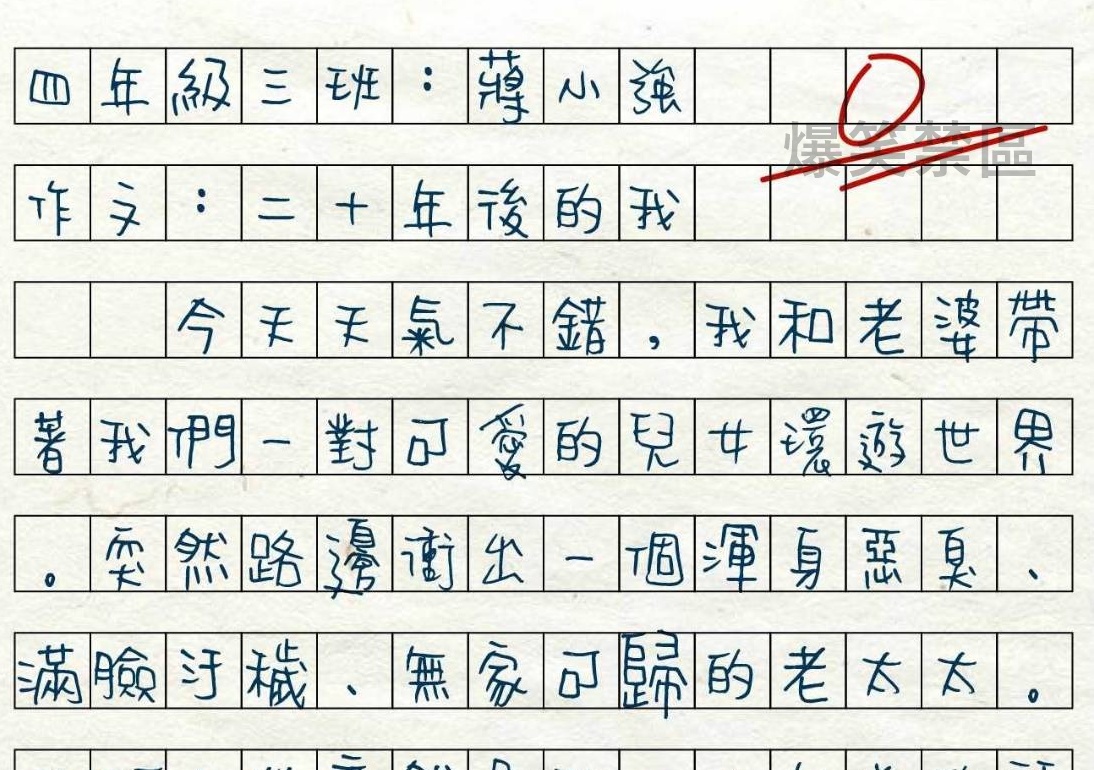 四年級三班：蔣小強
爆笑禁區
作文：二十年後的我
今天天氣不錯，我和老婆帶
著我們一對可愛的兒女環遊世界
。突然路邊衝出一個渾身惡臭、
滿臉汙穢、無家可歸的老太太。